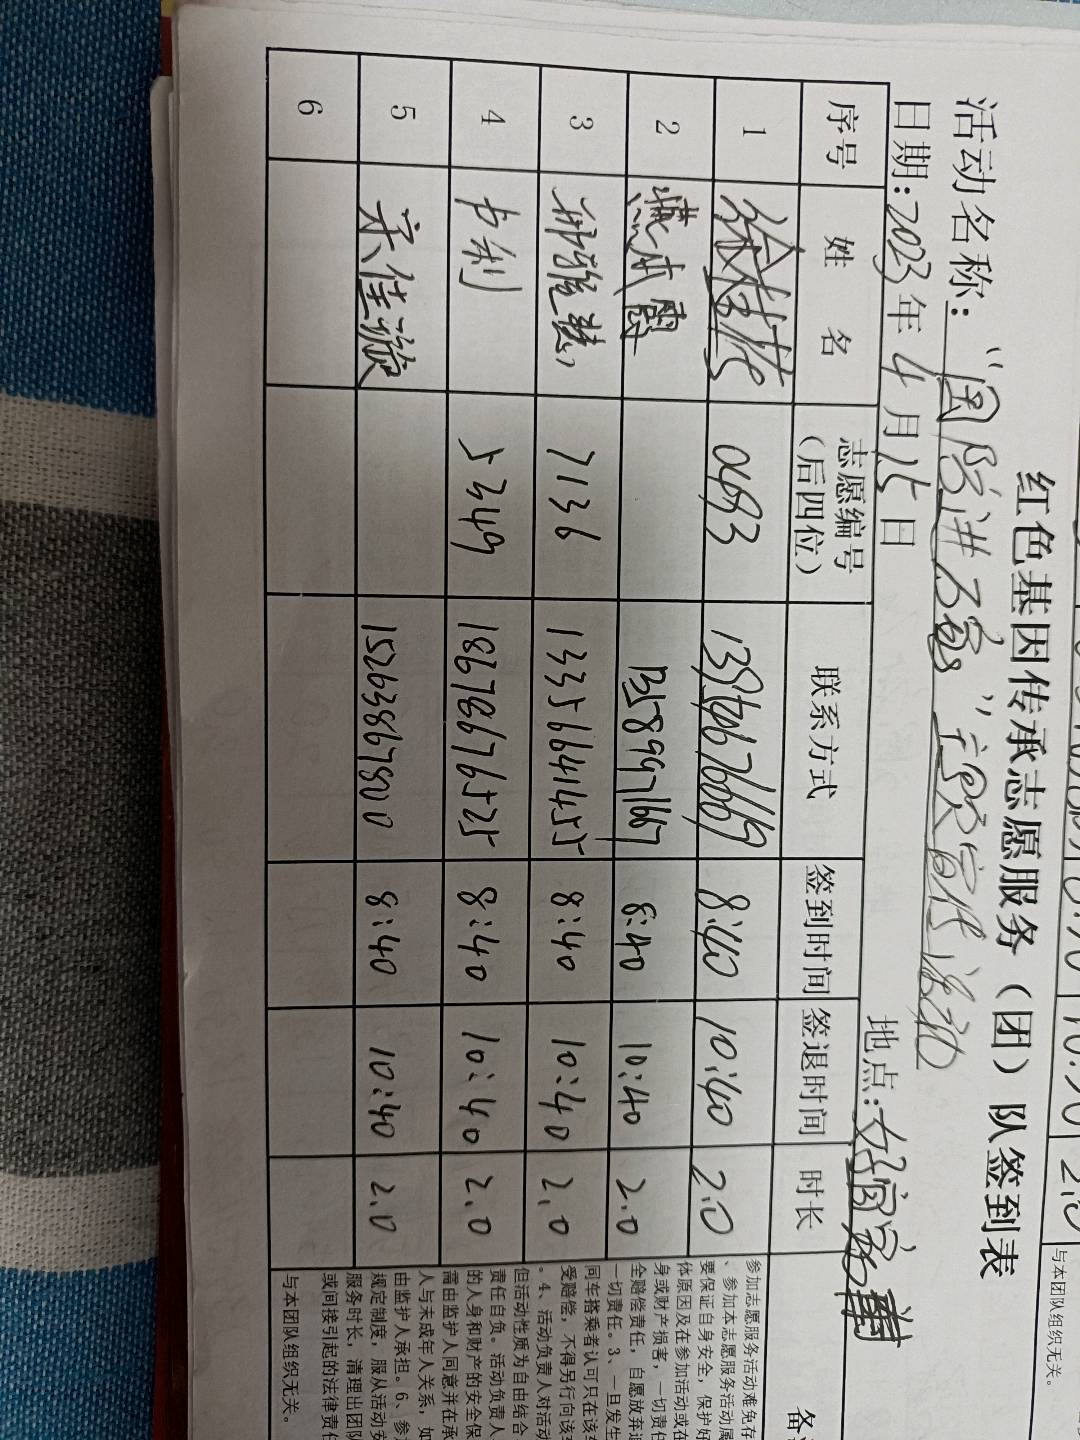 2.0
与本团队组织无关。
红色基因传承志愿服务（团）队签到表
活动名称：“国防进万家”主题宣传活动
日期：2023年4月15日 地点：好宜家
序号 姓 名 志愿编号（后四位） 联系方式 签到时间 签退时间 时长
1 0493 8:40 10:40 2.0
2 8:40 10:40 2.0
3 邢雅慧 7136 13356641455 8:40 10:40 2.0
4 5349 18678676525 8:40 10:40 2.0
5 宋佳璇 15263867800 8:40 10:40 2.0
6
参加志愿服务活动难免存
、参加本志愿服务活动属
要保证自身安全，保护好
体原因及在参加活动或在
身或财产损害，一切责任
全赔偿责任，自愿放弃追
一切责任。3、一旦发生
同车搭乘者认可只在该车
受赔偿，不得另行向该车
。4、活动负责人对活动
但活动性质为自由结合
责任自负。活动负责人
的人身和财产的安全保
需由监护人同意并在承
人与未成年人关系，如
由监护人承担。6、参
规定制度，服从活动安
服务时长，清理出团队
或间接引起的法律责任
与本团队组织无关。